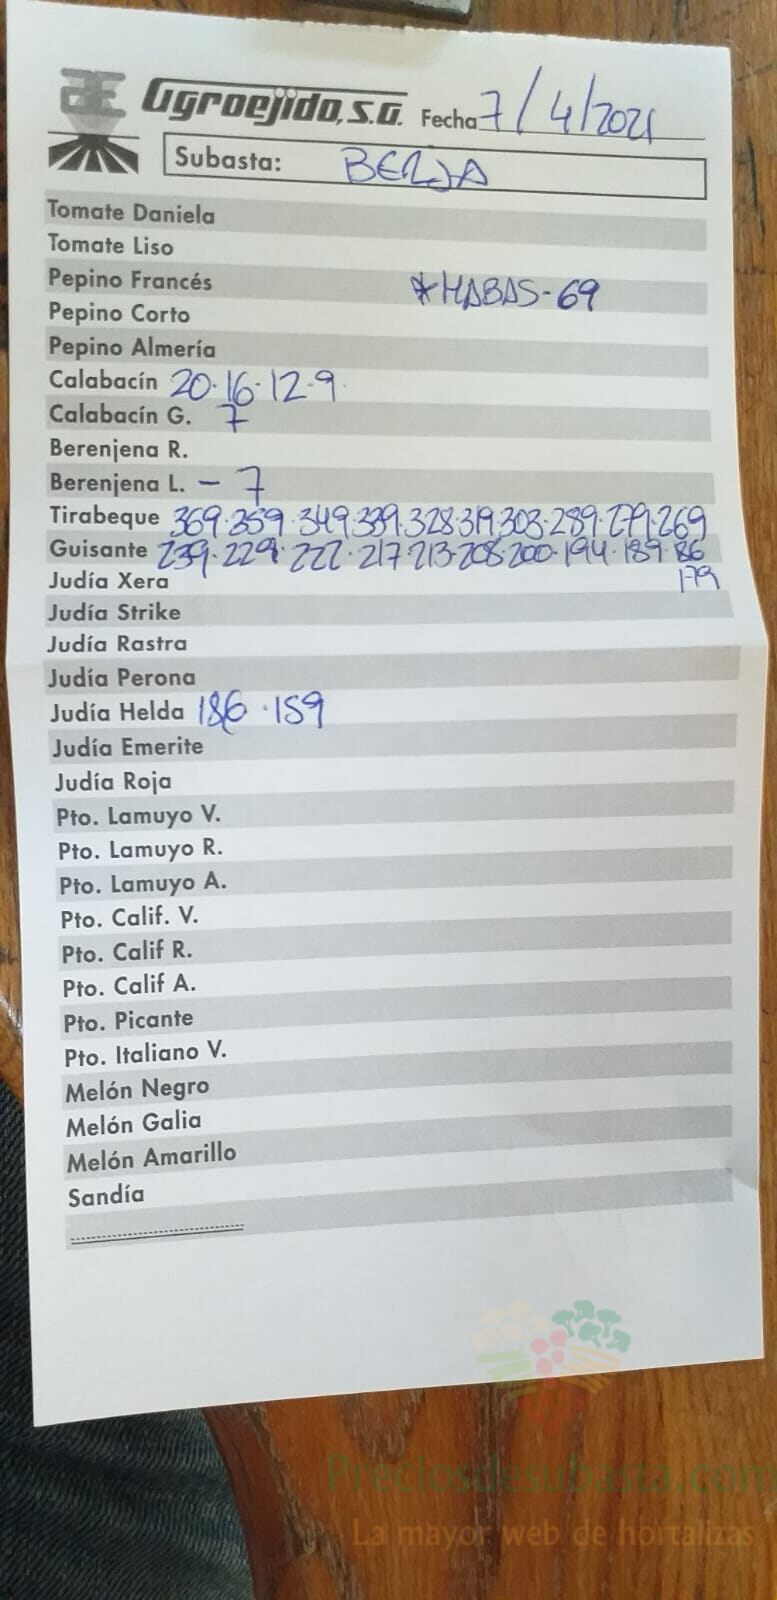 Agroejido, S.A. Fecha 7/4/2021
Subasta: BERJA
Tomate Daniela
Tomate Liso
Pepino Francés *HABAS-69
Pepino Corto
Pepino Almería
Calabacín 20·16·12·9·
Calabacín G. 7
Berenjena R.
Berenjena L. - 7
Tirabeque 369·359·349·339·328·319·303·289·279·269
Guisante 239·229·222·217·213·208·200·194·189·86
179
Judía Xera
Judía Strike
Judía Rastra
Judía Perona
Judía Helda 186·159
Judía Emerite
Judía Roja
Pto. Lamuyo V.
Pto. Lamuyo R.
Pto. Lamuyo A.
Pto. Calif. V.
Pto. Calif R.
Pto. Calif A.
Pto. Picante
Pto. Italiano V.
Melón Negro
Melón Galia
Melón Amarillo
Sandía
Preciosdesubasta.com
La mayor web de hortalizas